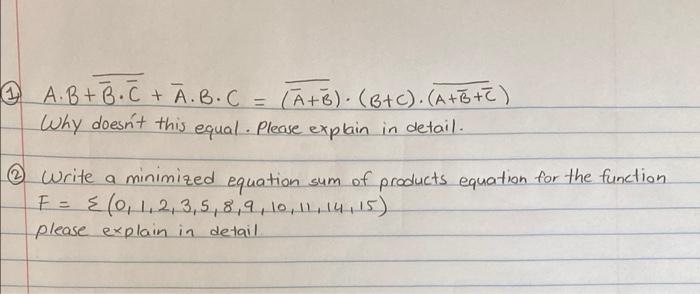 ① A.B + \overline{\overline{B}.\overline{C}} + \overline{A}.B.C = \overline{(\overline{A}+\overline{B})}.(B+C).\overline{(A+\overline{B}+\overline{C})}
Why doesn't this equal. Please explain in detail.
② Write a minimized equation sum of products equation for the function
F = Σ(0,1,2,3,5,8,9,10,11,14,15)
please explain in detail